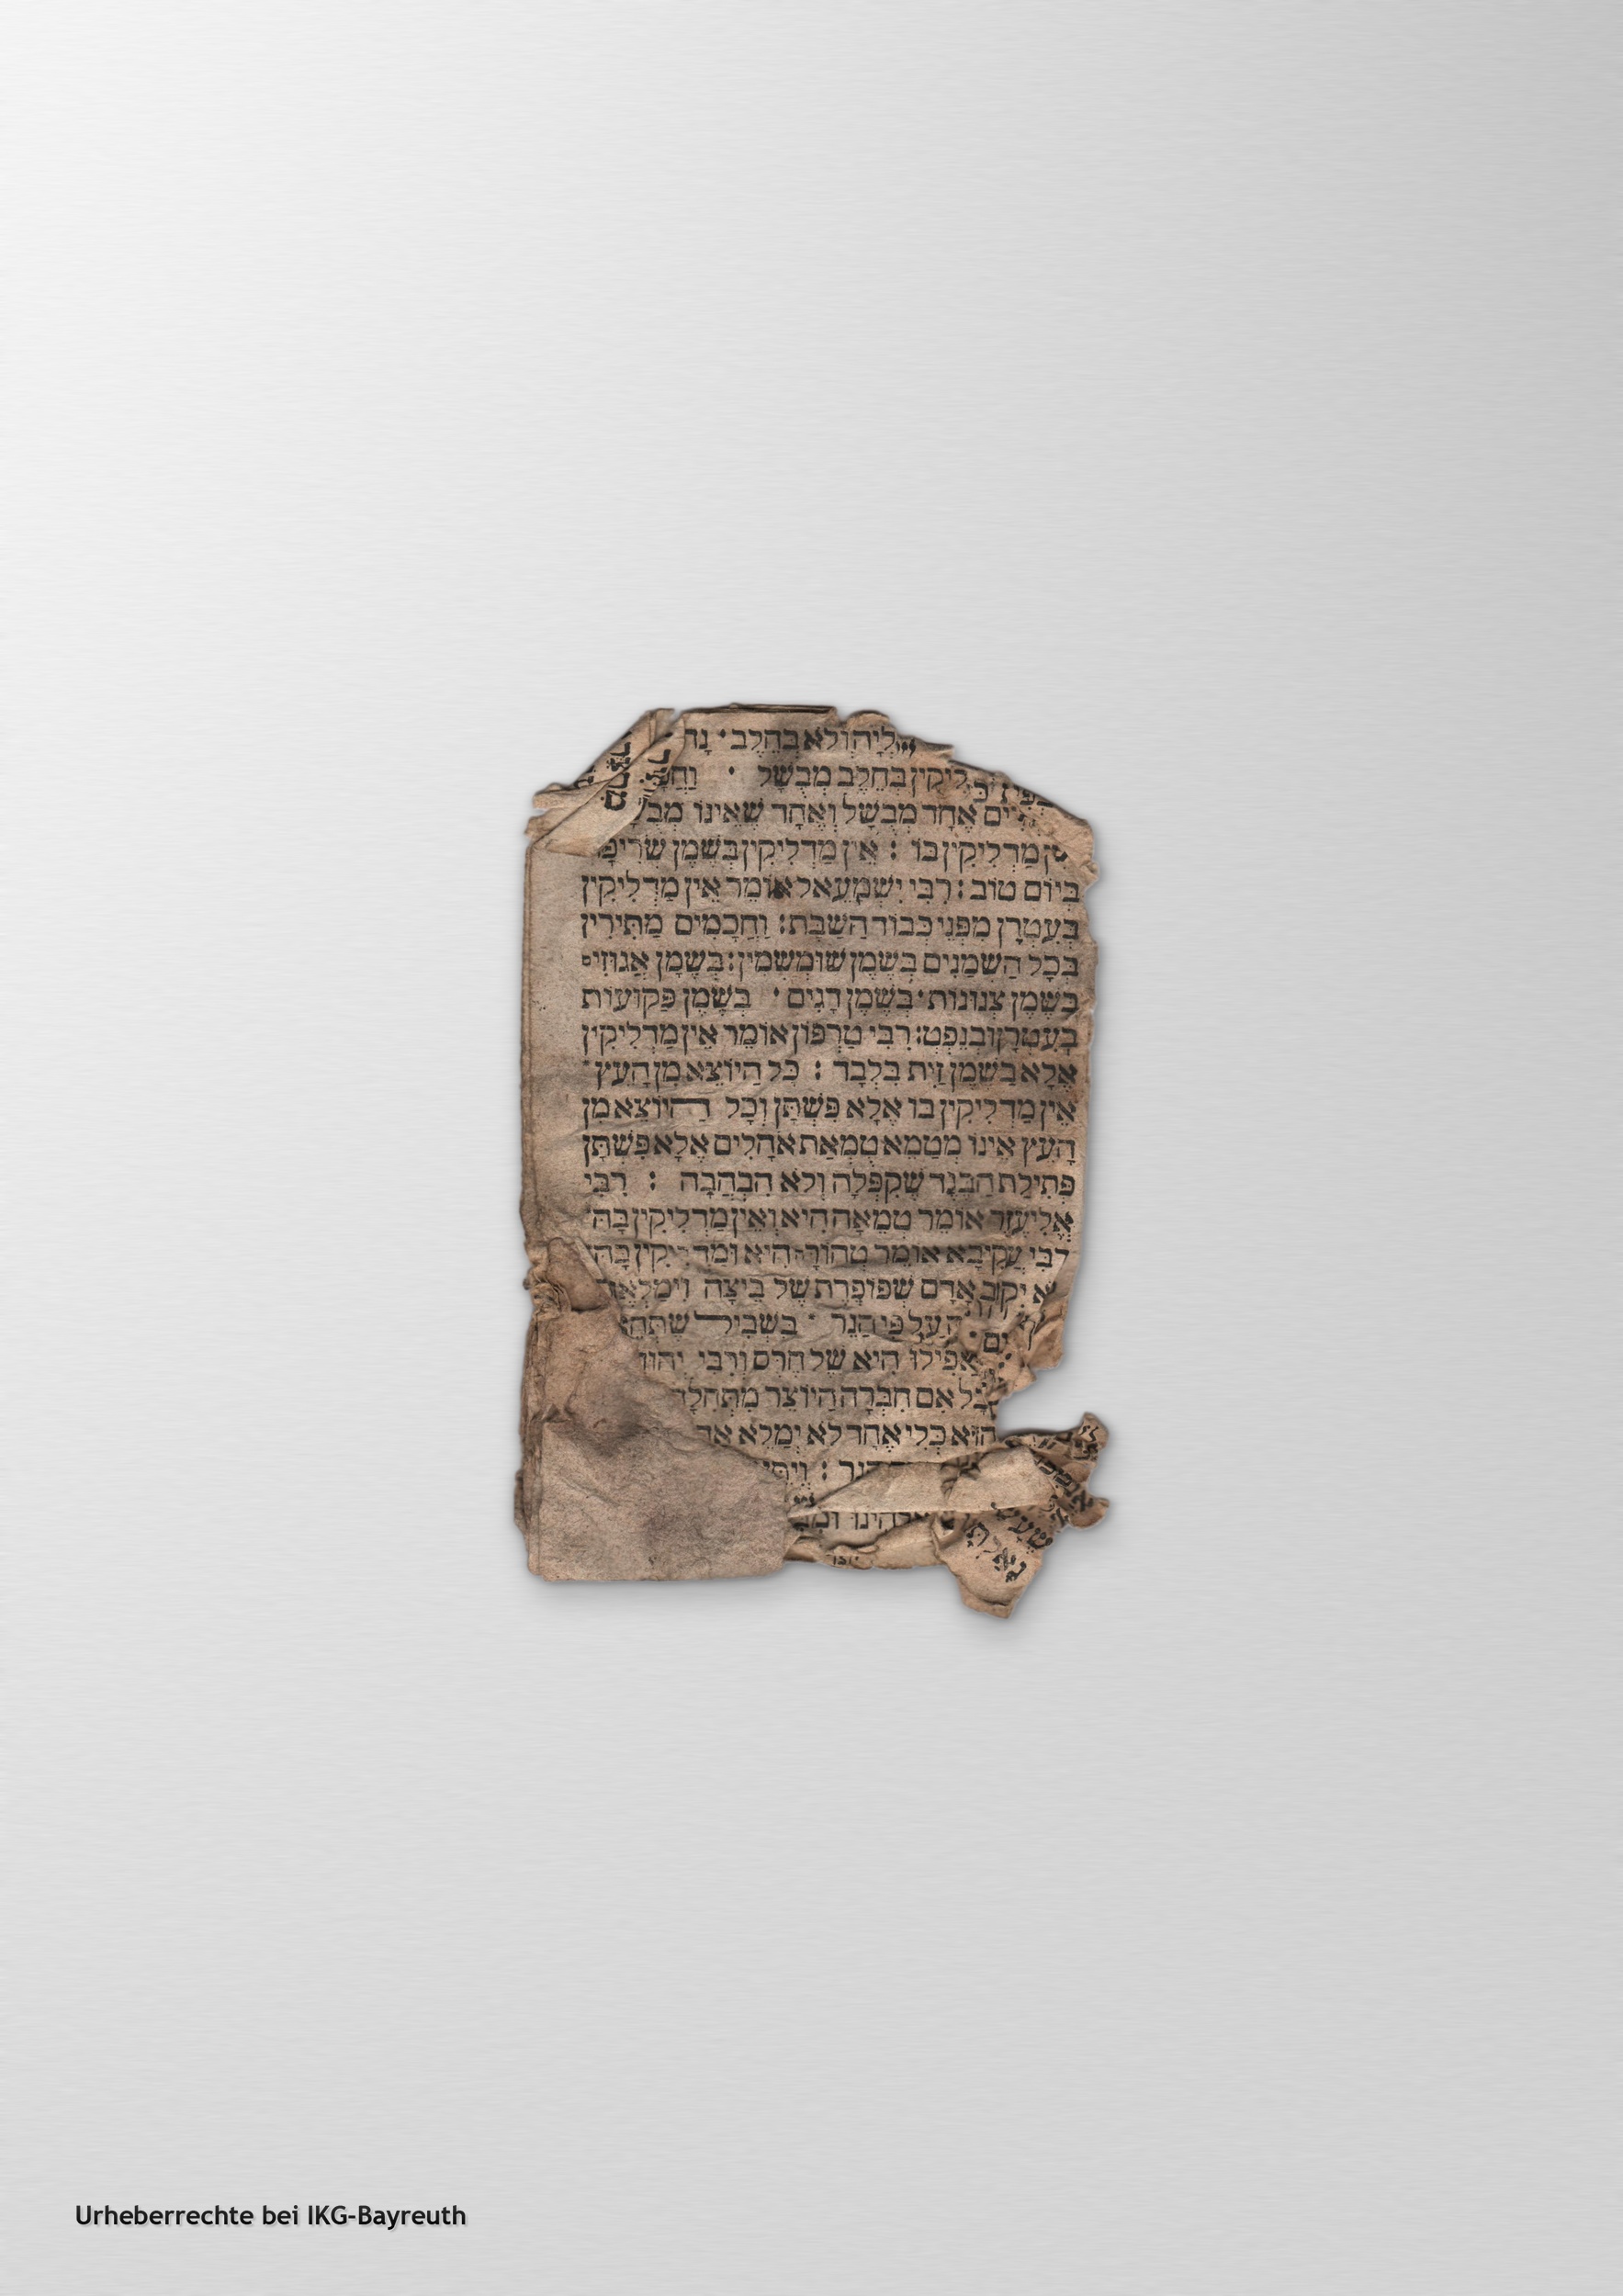 ליה ולא בחלב · נח
ליקין בחלב מבשל · וחכ
ים אחד מבשל ואחד שאינו מבש
מדליקין בו : אין מדליקין בשמן שריפה
ביום טוב : רבי ישמעאל אומר אין מדליקין
בעטרן מפני כבוד השבת : וחכמים מתירין
בכל השמנים בשמן שומשמין : בשמן אגוזים
בשמן צנונות · בשמן דגים · בשמן פקועות
בעטרן ובנפט : רבי טרפון אומר אין מדליקין
אלא בשמן זית בלבד : כל היוצא מן העץ
אין מדליקין בו אלא פשתן וכל היוצא מן
העץ אינו מטמא טמאת אהלים אלא פשתן
פתילת הבגד שקפלה ולא הבהבה : רבי
אליעזר אומר טמאה היא ואין מדליקין בה
רבי עקיבא אומר טהורה היא ומדליקין בה
יקוב אדם שפופרת של ביצה וימלאה
על פי הנר · בשביל שתהא
ים · אפילו היא של חרס ורבי יהוד
אבל אם חברה היוצר מתחלה
הוא כלי אחד לא ימלא אדם
הנר : ויתי